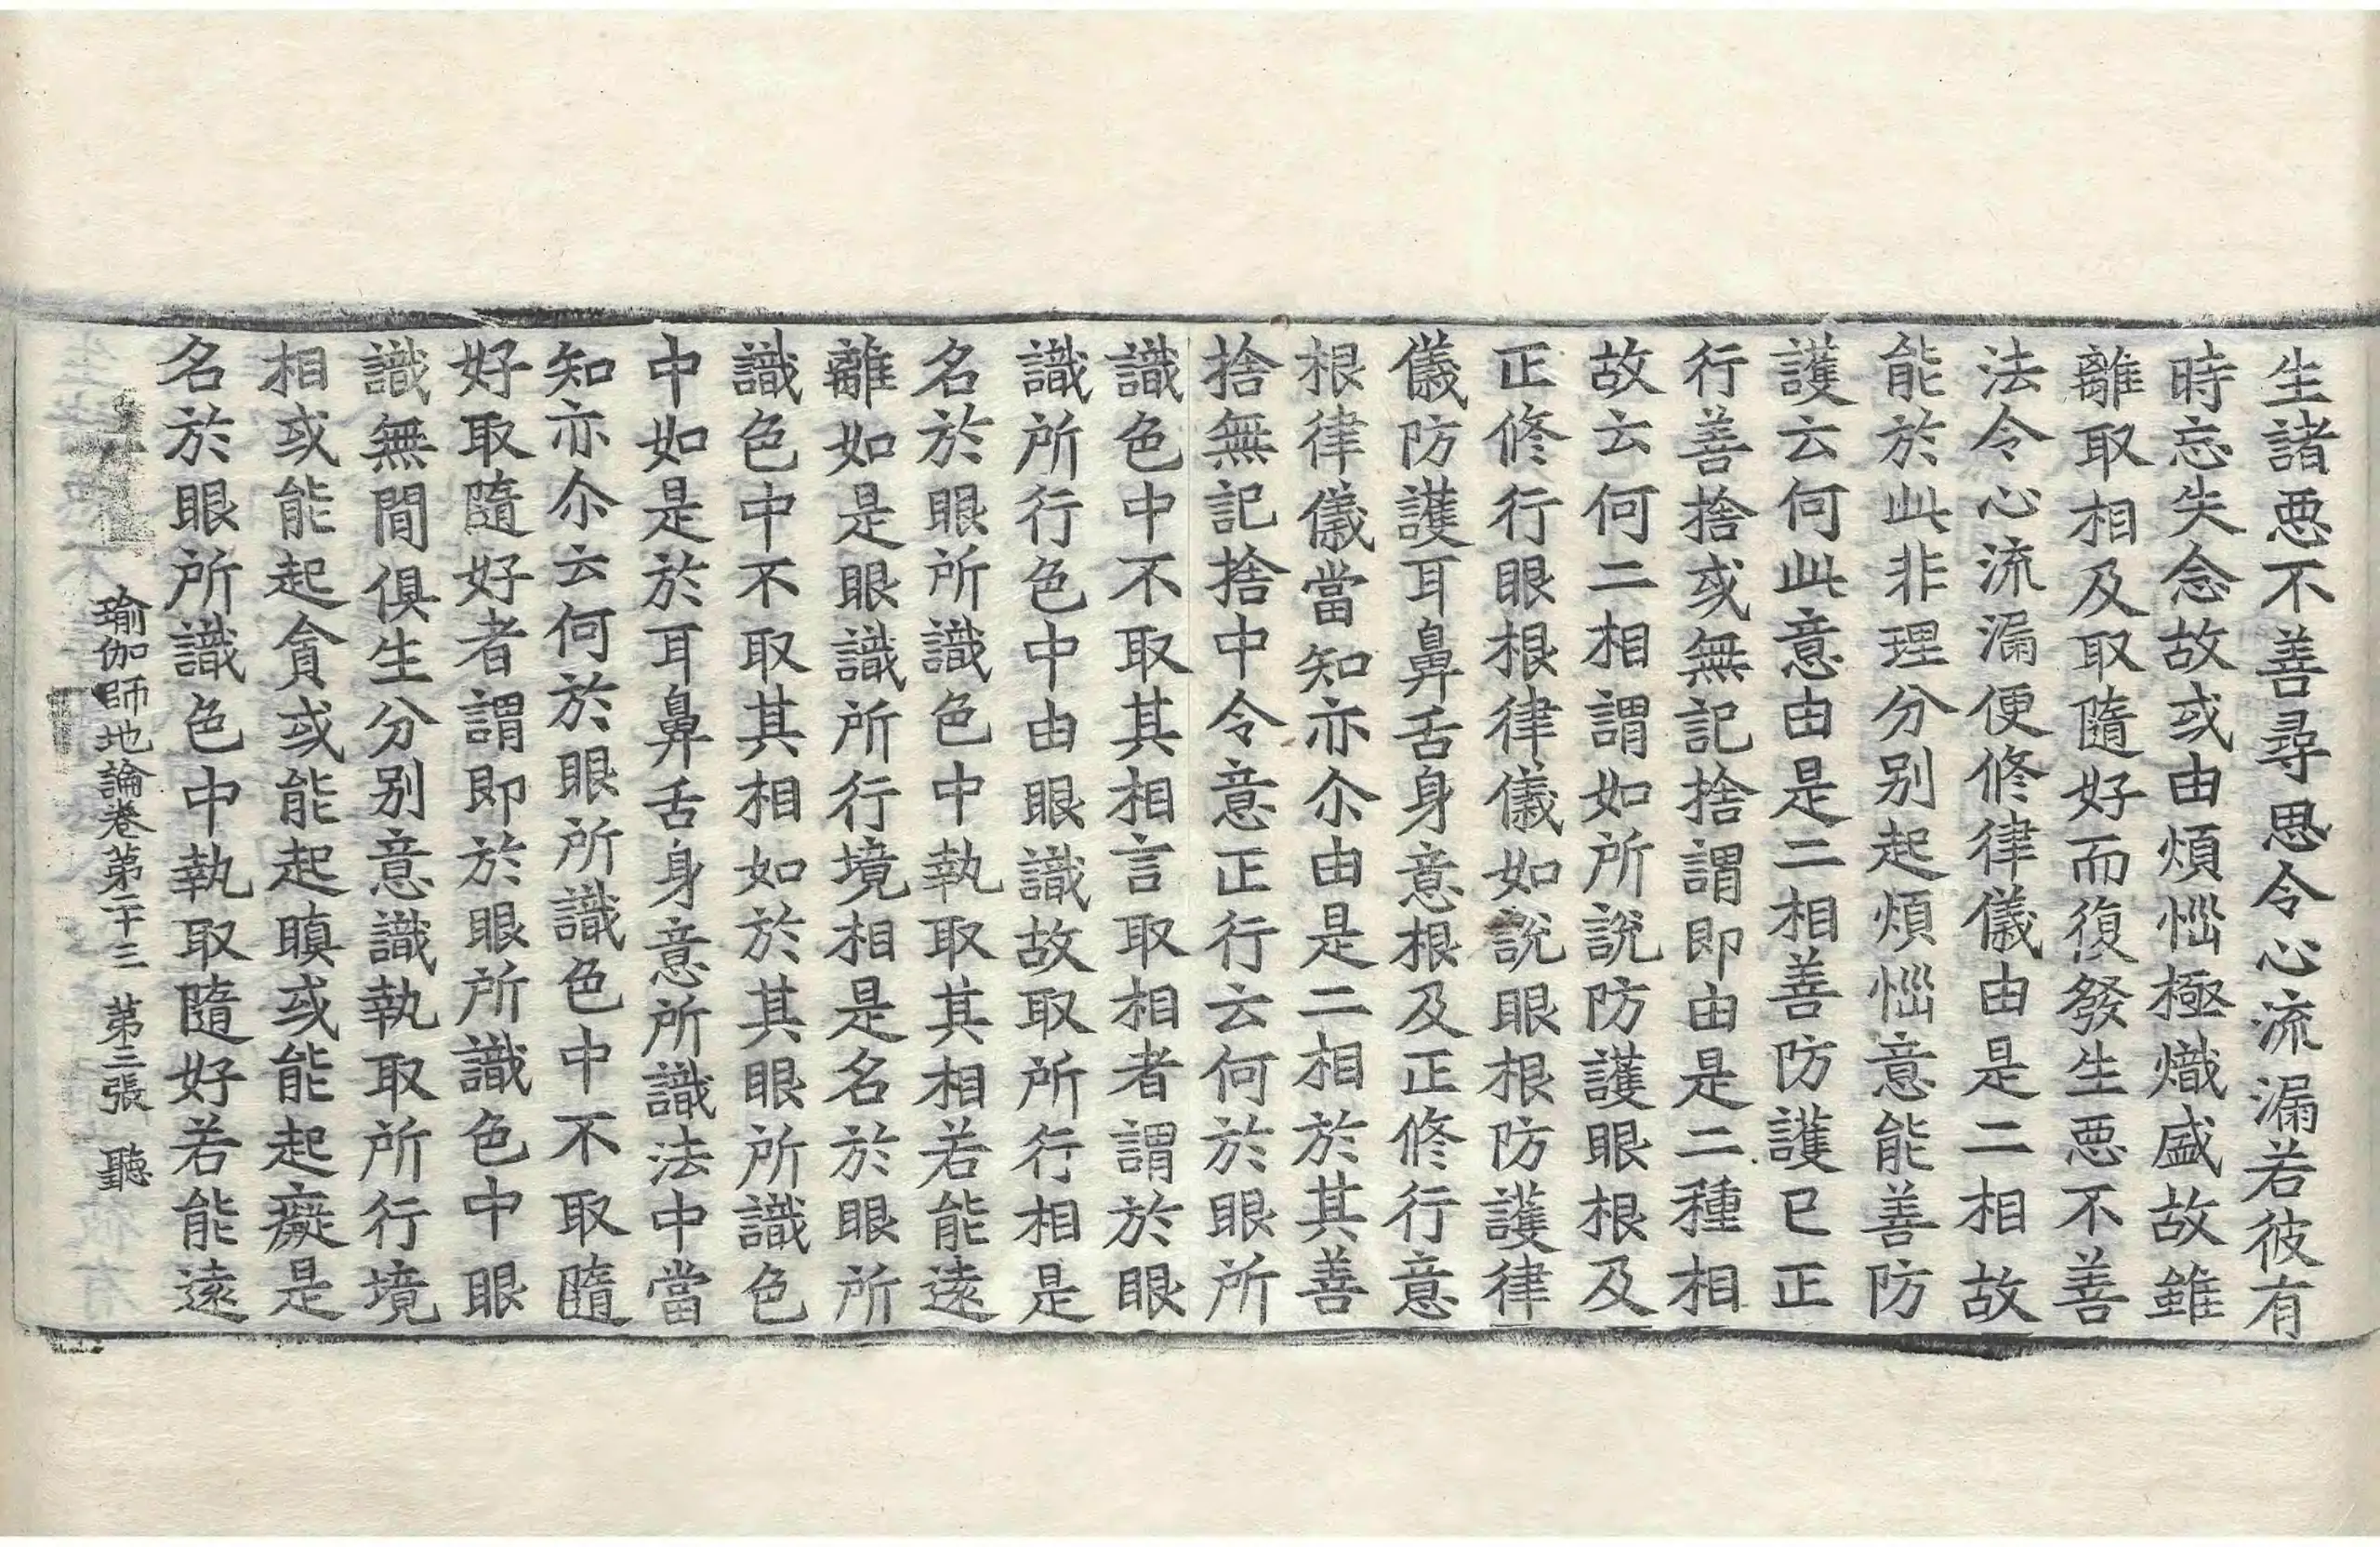 生諸悪不善尋思令心流漏若彼有
時忘失念故或由煩惱極熾盛故雖
離取相及取隨好而復發生悪不善
法令心流漏便修律儀由是二相故
能於此非理分别起煩惱意能善防
護云何此意由是二相善防護已正
行善捨或無記捨謂即由是二種相
故云何二相謂如所說防護眼根及
正修行眼根律儀如說眼根防護律
儀防護耳鼻舌身意根及正修行意
根律儀當知亦尒由是二相於其善
捨無記捨中令意正行云何於眼所
識色中不取其相言取相者謂於眼
識所行色中由眼識故取所行相是
名於眼所識色中執取其相若能遠
離如是眼識所行境相是名於眼所
識色中不取其相如於其眼所識色
中如是於耳鼻舌身意所識法中當
知亦尒云何於眼所識色中不取隨
好取隨好者謂即於眼所識色中眼
識無間俱生分别意識執取所行境
相或能起貪或能起瞋或能起癡是
名於眼所識色中執取隨好若能遠
瑜伽師地論卷第二十三 第三張 聽